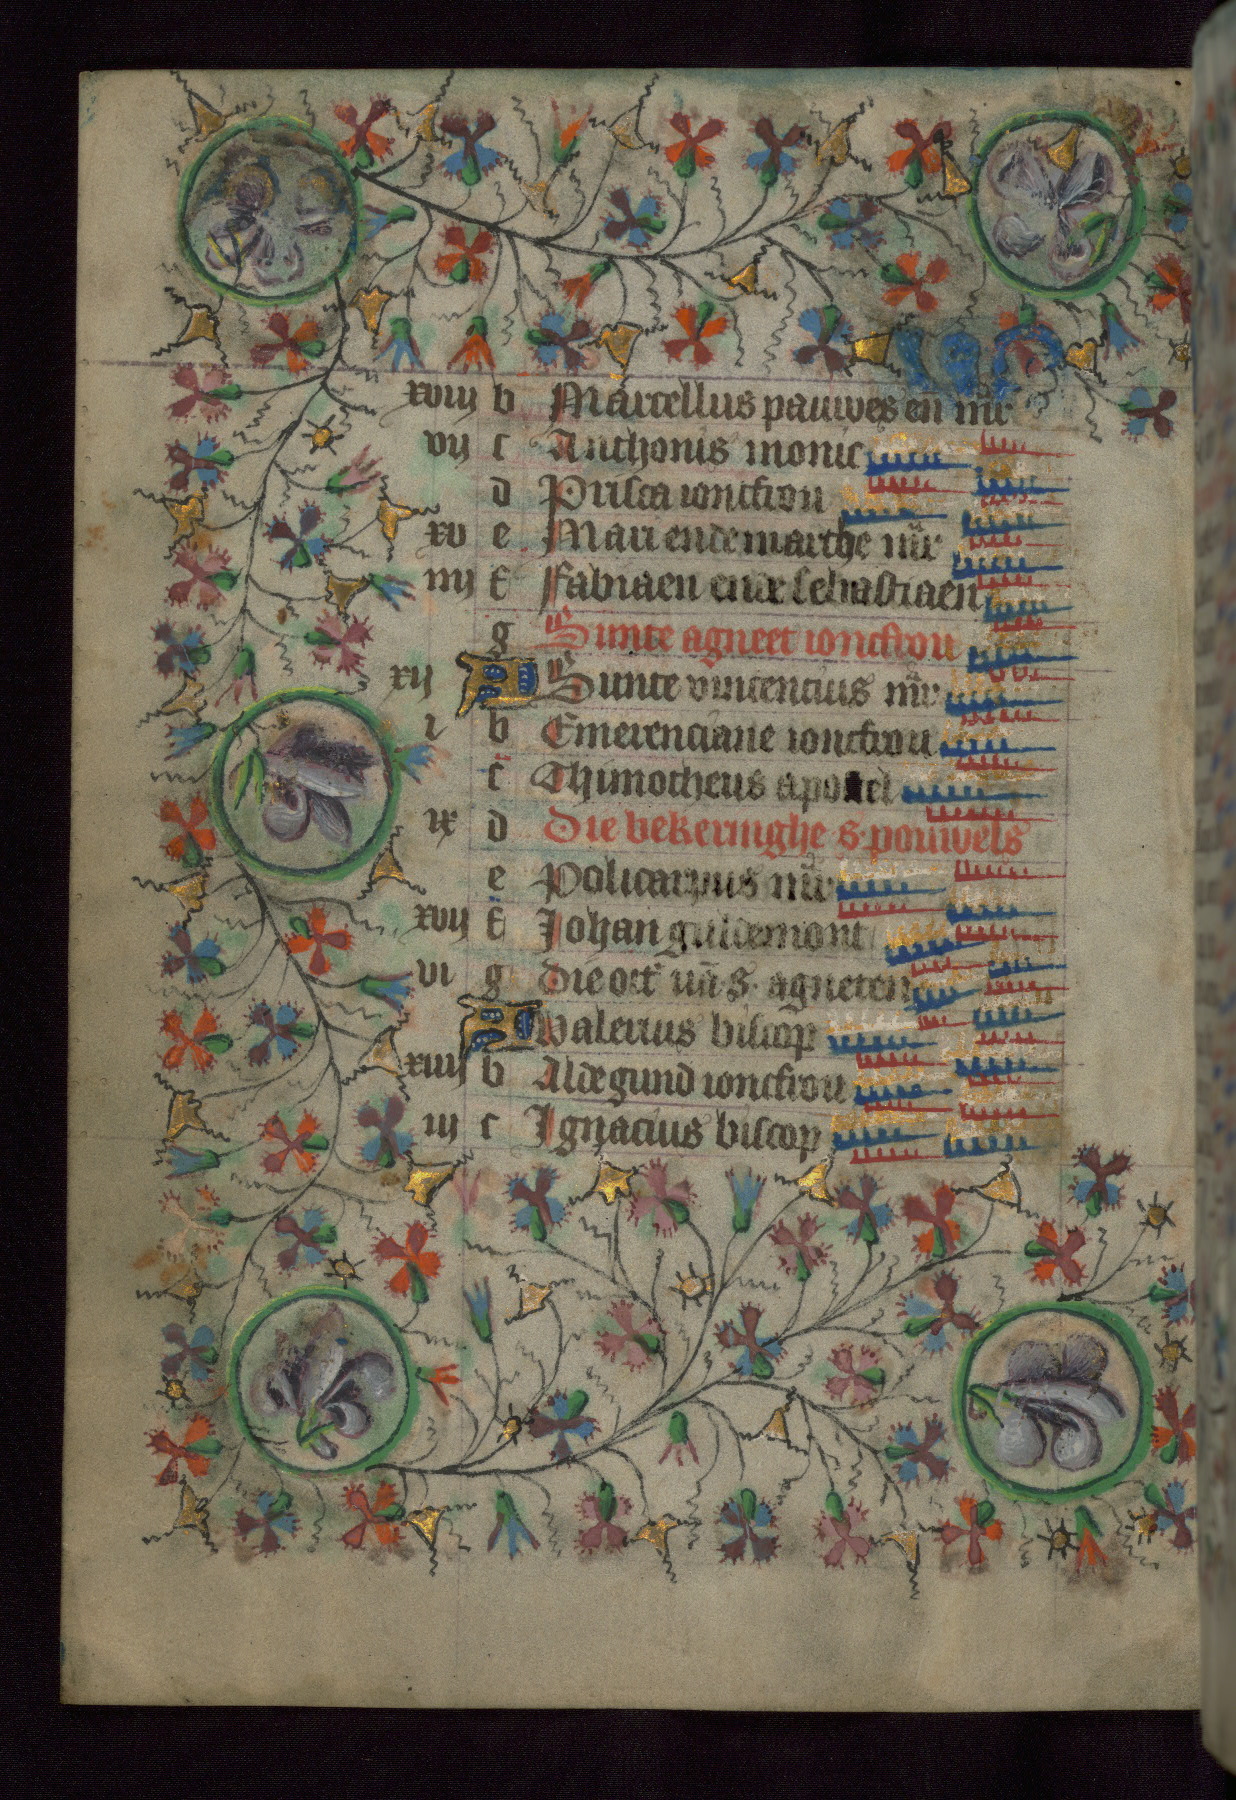 xviij b Marcellus pauwes en mr
vij c Anthonis monic
d Prisca ioncfrou
xv e Mari ende marthe mr
iiij f Fabiaen ende sebastiaen
g Sunte agneet ioncfrou
xij A Sunte vincencius mr
i b Emerenciane ioncfrou
c Thimotheus apostel
ix d Die bekeringhe s. pouwels
e Policarpus mr
xvij f Johan guldemont
vi g Die oct van s. agneten
A Valerius biscop
xiiij b Aldegund ioncfrou
iij c Ignacius biscop